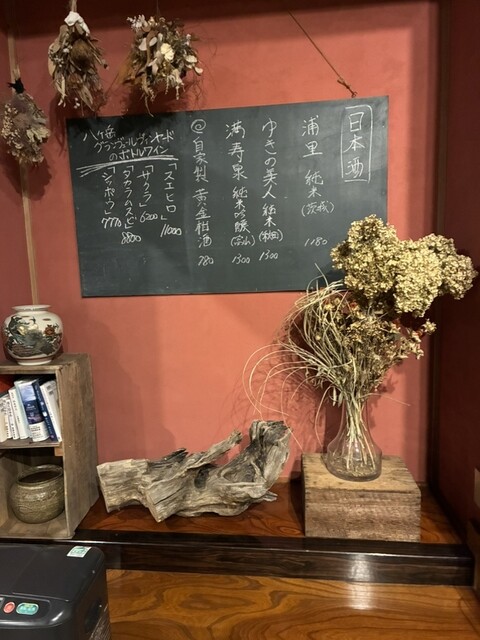 日本酒
浦里 純米 (茨城) 1180
ゆきの美人 純米 (秋田) 1300
満寿泉 純米吟醸 (富山) 1300
◎自家製 黄金柑酒 780
八ヶ岳
グランヴェールヴィンヤード
のボトルワイン
「スエヒロ」 11000
「サクラ」 6200
「タカラムスビ」 8800
「シッポウ」 7770